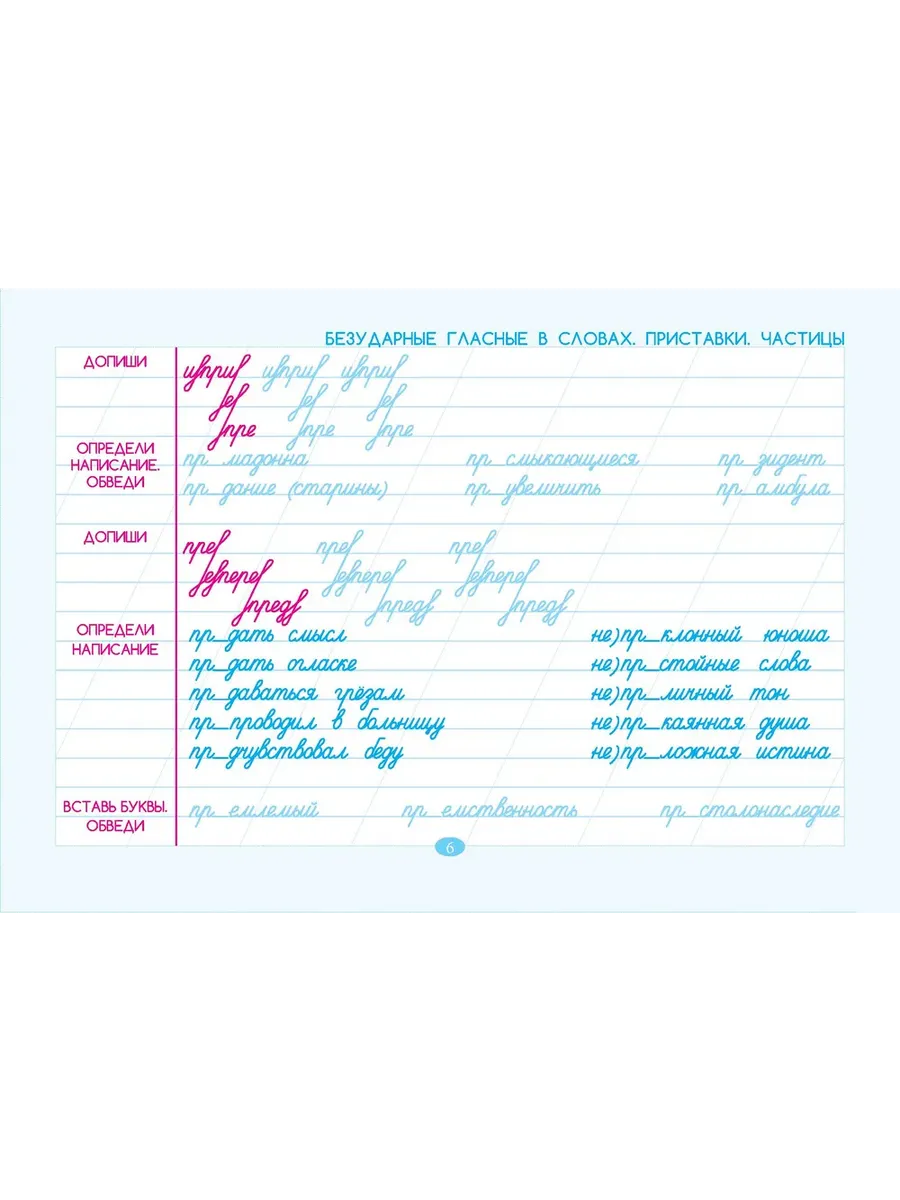 БЕЗУДАРНЫЕ ГЛАСНЫЕ В СЛОВАХ. ПРИСТАВКИ. ЧАСТИЦЫ
ДОПИШИ
пре
пре
пре
ОПРЕДЕЛИ НАПИСАНИЕ. ОБВЕДИ
пр_мадонна пр_смыкающиеся пр_зидент
пр_дание (старины) пр_увеличить пр_амбула
ДОПИШИ
ОПРЕДЕЛИ НАПИСАНИЕ
пр_дать смысл не)пр_клонный юноша
пр_дать огласке не)пр_стойные слова
пр_даваться грёзам не)пр_личный тон
пр_проводил в больницу не)пр_каянная душа
пр_дчувствовал беду не)пр_ложная истина
ВСТАВЬ БУКВЫ. ОБВЕДИ
пр_емлемый пр_емственность пр_столонаследие
6